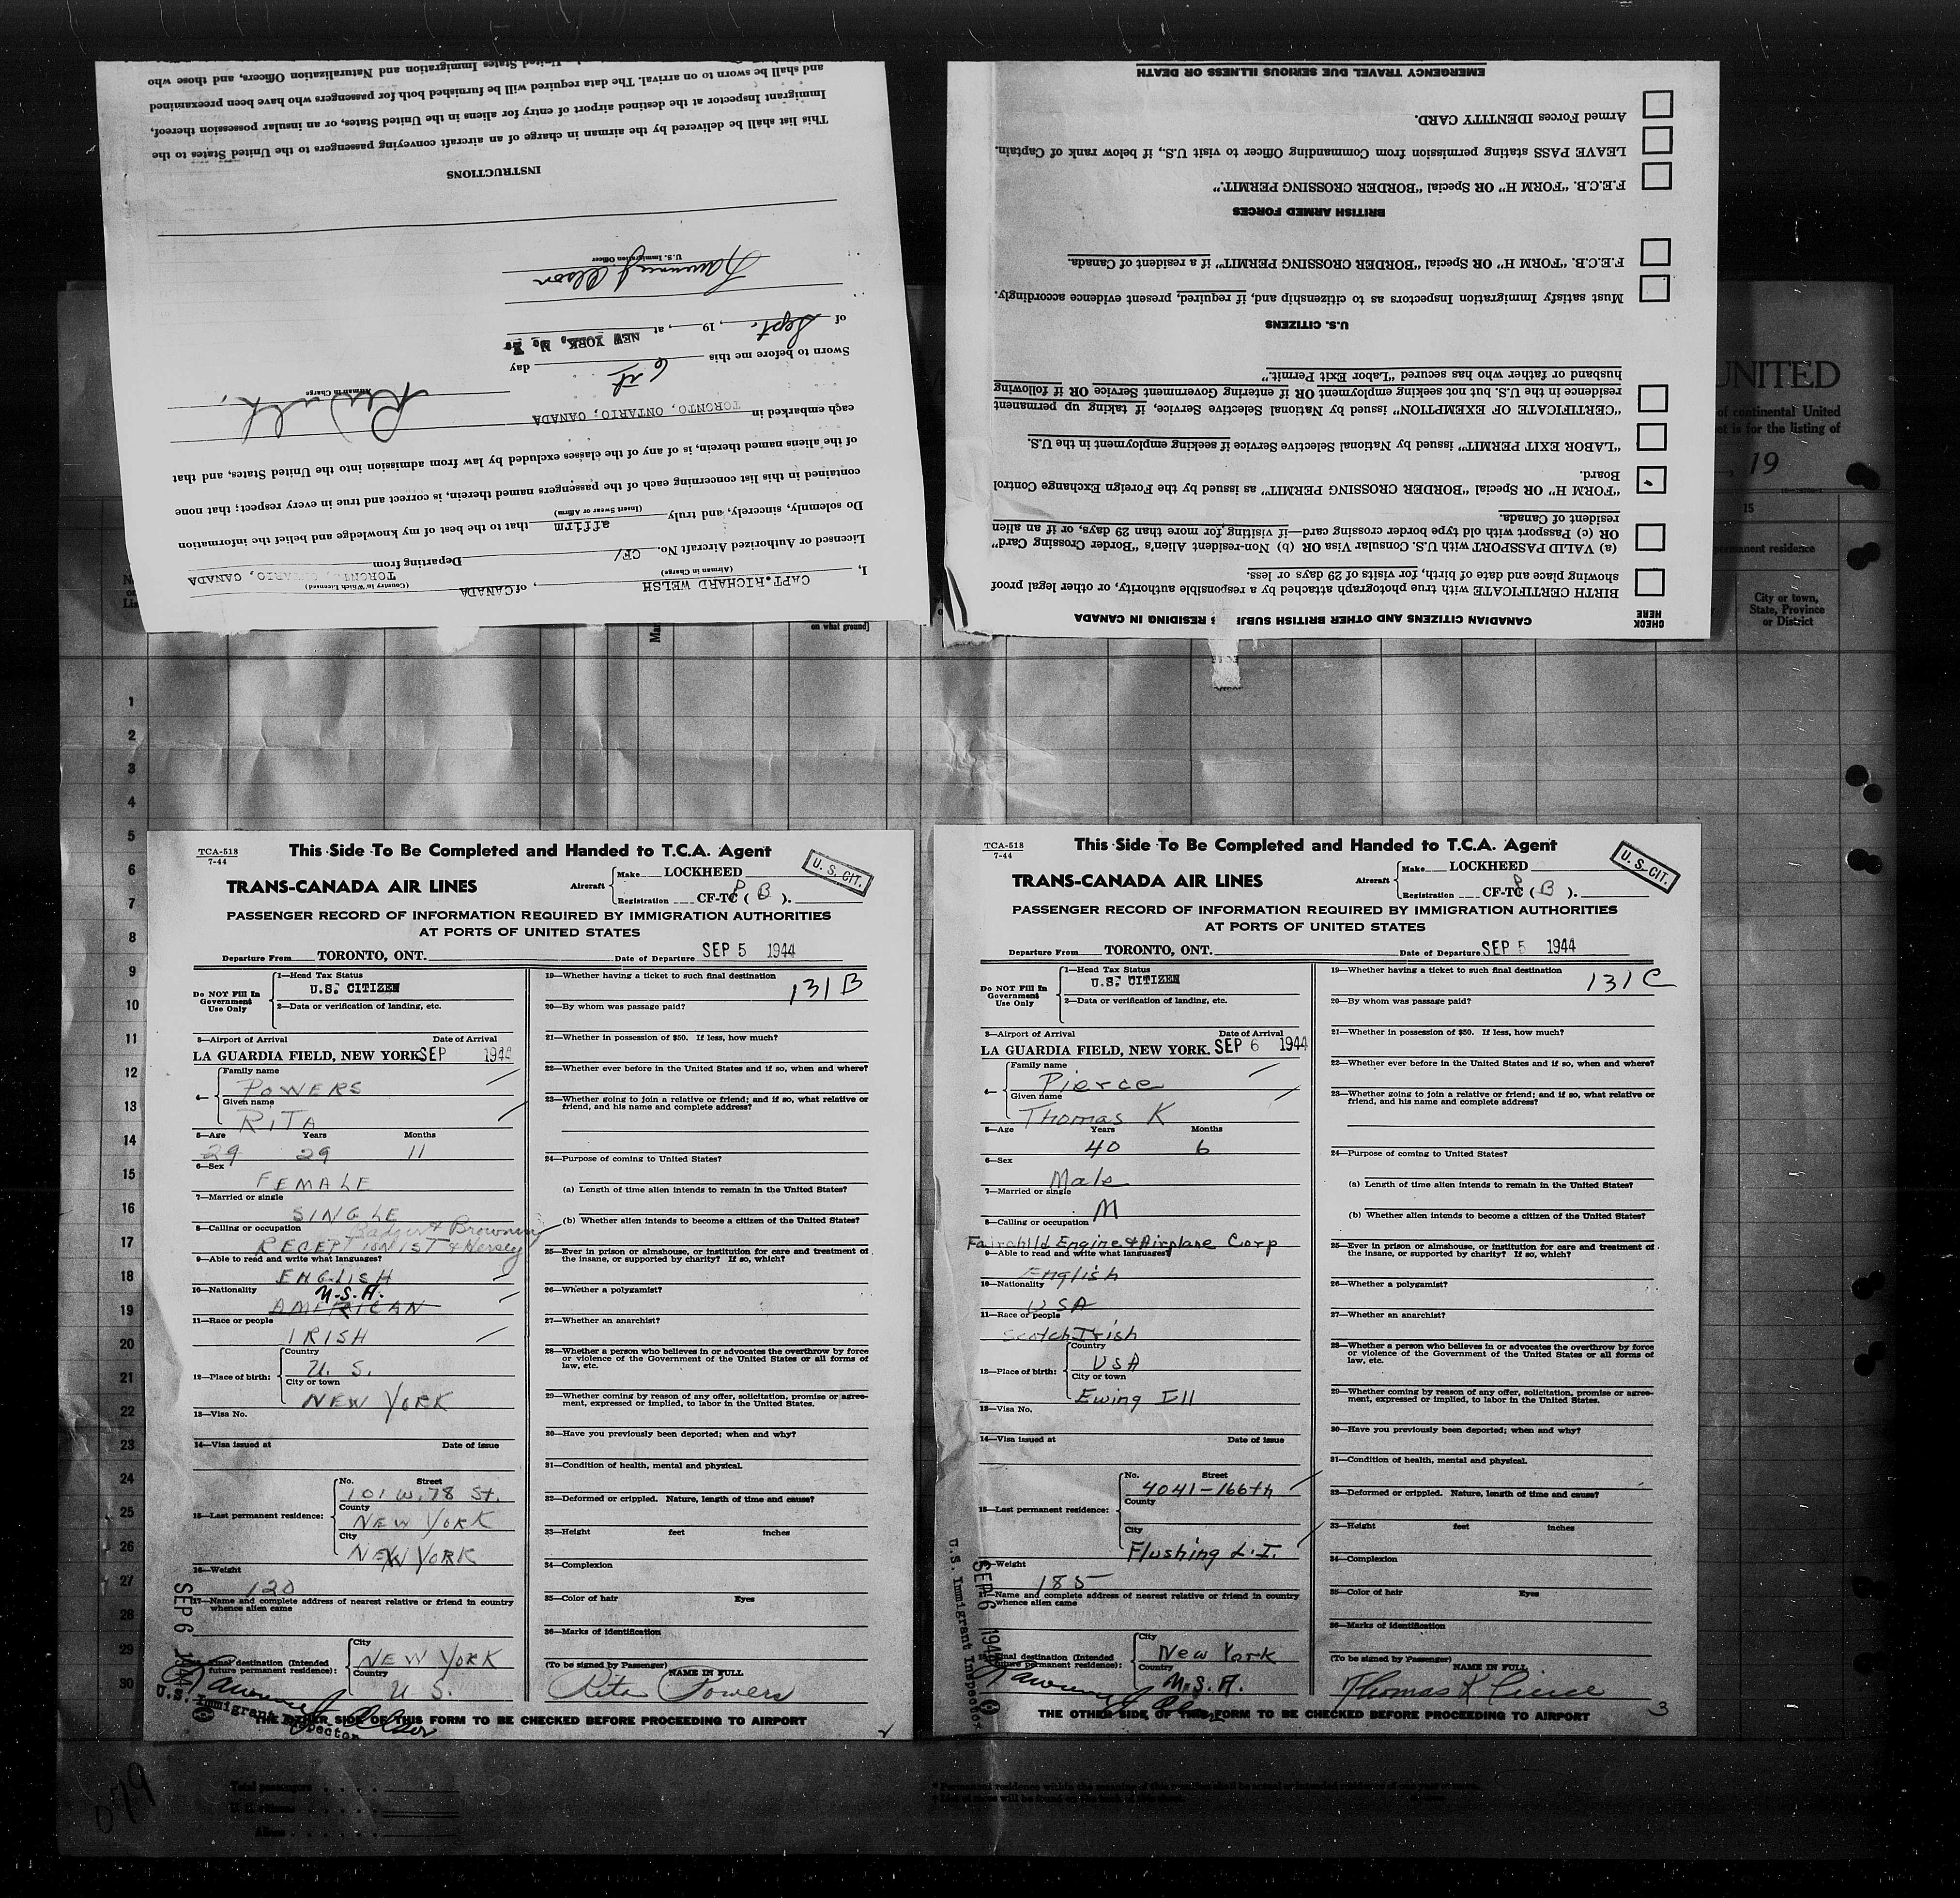 INSTRUCTIONS
This list shall be delivered by the airman in charge of an aircraft conveying passengers to the United States to the
Immigrant Inspector at the destined airport of entry for aliens in the United States, or an insular possession thereof,
and shall be sworn to on arrival. The data required will be furnished both for passengers who have been preexamined
United States Immigration and Naturalization Officers, and those who
I, CAPT. RICHARD WELSH, of CANADA
(Airman in Charge) (Country in Which Licensed)
Licensed or Authorized Aircraft No. CF/ Departing from TORONTO, ONTARIO, CANADA
Do solemnly, sincerely, and truly affirm that to the best of my knowledge and belief the information
(Insert Swear or Affirm)
contained in this list concerning each of the passengers named therein, is correct and true in every respect; that none
of the aliens named therein, is of any of the classes excluded by law from admission into the United States, and that
each embarked in TORONTO, ONTARIO, CANADA
Airman in Charge
Sworn to before me this 6 day
of Sept., 19 , at NEW YORK, N. Y.
U.S. Immigration Officer
CHECK HERE
CANADIAN CITIZENS AND OTHER BRITISH SUBJ S RESIDING IN CANADA
BIRTH CERTIFICATE with true photograph attached by a responsible authority, or other legal proof
showing place and date of birth, for visits of 29 days or less.
(a) VALID PASSPORT with U.S. Consular Visa OR (b) Non-resident Alien's "Border Crossing Card"
OR (c) Passport with old type border crossing card—if visiting for more than 29 days, or if an alien
resident of Canada.
"FORM H" OR Special "BORDER CROSSING PERMIT" as issued by the Foreign Exchange Control
Board.
"LABOR EXIT PERMIT" issued by National Selective Service if seeking employment in the U.S.
"CERTIFICATE OF EXEMPTION" issued by National Selective Service, if taking up permanent
residence in the U.S. but not seeking employment OR if entering Government Service OR if following
husband or father who has secured "Labor Exit Permit."
U.S. CITIZENS
Must satisfy Immigration Inspectors as to citizenship and, if required, present evidence accordingly.
F.E.C.B. "FORM H" OR Special "BORDER CROSSING PERMIT" if a resident of Canada.
BRITISH ARMED FORCES
F.E.C.B. "FORM H" OR Special "BORDER CROSSING PERMIT."
LEAVE PASS stating permission from Commanding Officer to visit U.S., if below rank of Captain.
Armed Forces IDENTITY CARD.
EMERGENCY TRAVEL DUE SERIOUS ILLNESS OR DEATH
UNITED
of continental United
et is for the listing of
, 19
15
permanent residence
City or town,
State, Province
or District
on what ground]
1
2
3
4
5
6
7
8
9
10
11
12
13
14
15
16
17
18
19
20
21
22
23
24
25
26
27
28
29
30
TCA-518
7-44
This Side To Be Completed and Handed to T.C.A. Agent
U. S. CIT.
TRANS-CANADA AIR LINES
Aircraft
Make LOCKHEED
Registration CF-TC ( B ).
PASSENGER RECORD OF INFORMATION REQUIRED BY IMMIGRATION AUTHORITIES
AT PORTS OF UNITED STATES
Departure From TORONTO, ONT. Date of Departure SEP 5 1944
Do NOT Fill In
Government
Use Only
1—Head Tax Status
U.S. CITIZEN
2—Data or verification of landing, etc.
3—Airport of Arrival Date of Arrival
LA GUARDIA FIELD, NEW YORK SEP 1944
4—
Family name
POWERS
Given name
RITA
5—Age Years Months
29 29 11
6—Sex
FEMALE
7—Married or single
SINGLE
8—Calling or occupation
Browning
RECEPTIONIST & Hersey
9—Able to read and write what languages?
ENGLISH
10—Nationality
U.S.A.
AMERICAN
11—Race or people
IRISH
12—Place of birth:
Country
U. S.
City or town
NEW YORK
13—Visa No.
14—Visa issued at Date of issue
15—Last permanent residence:
No. Street
101 W. 78 St.
County
NEW YORK
City
NEW YORK
16—Weight
120
17—Name and complete address of nearest relative or friend in country
whence alien came
18—Final destination (Intended
future permanent residence):
City
NEW YORK
Country
U. S.
19—Whether having a ticket to such final destination
131 B
20—By whom was passage paid?
21—Whether in possession of $50. If less, how much?
22—Whether ever before in the United States and if so, when and where?
23—Whether going to join a relative or friend; and if so, what relative or
friend, and his name and complete address?
24—Purpose of coming to United States?
(a) Length of time alien intends to remain in the United States?
(b) Whether alien intends to become a citizen of the United States?
25—Ever in prison or almshouse, or institution for care and treatment of
the insane, or supported by charity? If so, which?
26—Whether a polygamist?
27—Whether an anarchist?
28—Whether a person who believes in or advocates the overthrow by force
or violence of the Government of the United States or all forms of
law, etc.
29—Whether coming by reason of any offer, solicitation, promise or agree-
ment, expressed or implied, to labor in the United States.
30—Have you previously been deported; when and why?
31—Condition of health, mental and physical.
32—Deformed or crippled. Nature, length of time and cause?
33—Height feet inches
34—Complexion
35—Color of hair Eyes
36—Marks of identification
(To be signed by Passenger) NAME IN FULL
Rita Powers
SEP 6 1944
U.S. Immigrant Inspector
THE OTHER SIDE OF THIS FORM TO BE CHECKED BEFORE PROCEEDING TO AIRPORT
2
TCA-518
7-44
This Side To Be Completed and Handed to T.C.A. Agent
U. S. CIT.
TRANS-CANADA AIR LINES
Aircraft
Make LOCKHEED
Registration CF-TC ( B ).
PASSENGER RECORD OF INFORMATION REQUIRED BY IMMIGRATION AUTHORITIES
AT PORTS OF UNITED STATES
Departure From TORONTO, ONT. Date of Departure SEP 5 1944
Do NOT Fill In
Government
Use Only
1—Head Tax Status
U.S. CITIZEN
2—Data or verification of landing, etc.
3—Airport of Arrival Date of Arrival
LA GUARDIA FIELD, NEW YORK. SEP 6 1944
4—
Family name
Pierce
Given name
Thomas K
5—Age Years Months
40 6
6—Sex
Male
7—Married or single
M
8—Calling or occupation
Fairchild Engine & Airplane Corp
9—Able to read and write what languages?
English
10—Nationality
USA
11—Race or people
Scotch Irish
12—Place of birth:
Country
USA
City or town
Ewing Ill
13—Visa No.
14—Visa issued at Date of issue
15—Last permanent residence:
No. Street
4041-166th
County
City
Flushing L.I.
16—Weight
185
17—Name and complete address of nearest relative or friend in country
whence alien came
18—Final destination (Intended
future permanent residence):
City
New York
Country
U.S.A.
19—Whether having a ticket to such final destination
131 C
20—By whom was passage paid?
21—Whether in possession of $50. If less, how much?
22—Whether ever before in the United States and if so, when and where?
23—Whether going to join a relative or friend; and if so, what relative or
friend, and his name and complete address?
24—Purpose of coming to United States?
(a) Length of time alien intends to remain in the United States?
(b) Whether alien intends to become a citizen of the United States?
25—Ever in prison or almshouse, or institution for care and treatment of
the insane, or supported by charity? If so, which?
26—Whether a polygamist?
27—Whether an anarchist?
28—Whether a person who believes in or advocates the overthrow by force
or violence of the Government of the United States or all forms of
law, etc.
29—Whether coming by reason of any offer, solicitation, promise or agree-
ment, expressed or implied, to labor in the United States.
30—Have you previously been deported; when and why?
31—Condition of health, mental and physical.
32—Deformed or crippled. Nature, length of time and cause?
33—Height feet inches
34—Complexion
35—Color of hair Eyes
36—Marks of identification
(To be signed by Passenger) NAME IN FULL
Thomas K Pierce
SEP 6 1944
U.S. Immigrant Inspector
THE OTHER SIDE OF THIS FORM TO BE CHECKED BEFORE PROCEEDING TO AIRPORT
3
079
Total passengers
U. S. citizens
Aliens